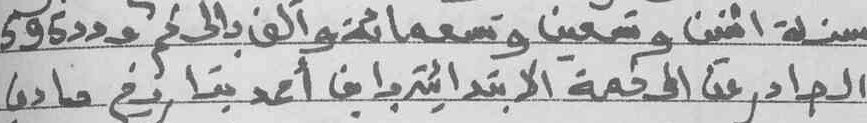 سنة اثنين وتسعين وتسعمائة وألف والحكم عدد 595
الصادر عن المحكمة الابتدائية بابن أحمد بتاريخ صادق